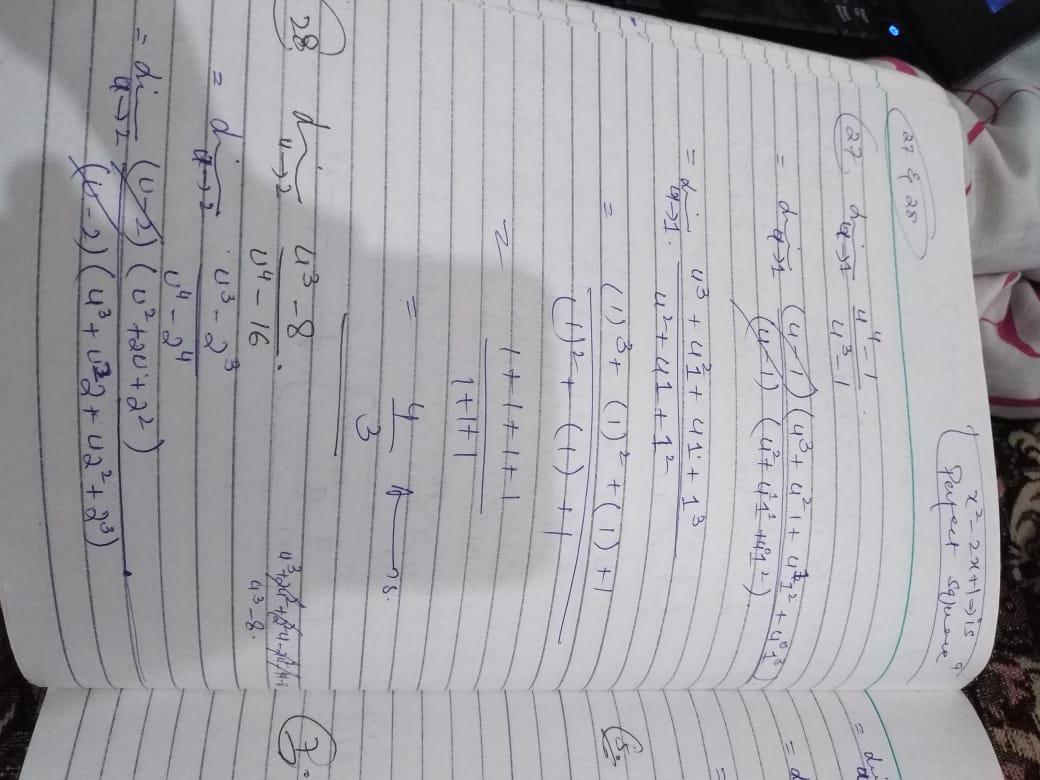 27 & 28
x² - 2x + 1 => is
Perfect square
27. lim u→1 u⁴ - 1 / u³ - 1
= lim u→1 (u - 1) (u³ + u²1 + u¹1² + u⁰1³) / (u - 1) (u² + u¹1¹ + u⁰1²)
= lim u→1. u³ + u²1 + u1 + 1³ / u² + u1 + 1²
= (1)³ + (1)² + (1) + 1 / (1)² + (1) + 1
= 1 + 1 + 1 + 1 / 1 + 1 + 1
= 4 / 3 Ans.
28 lim u→2 u³ - 8 / u⁴ - 16
u³ - 8.
= lim u→2 u³ - 2³ / u⁴ - 2⁴
= lim u→2 (u - 2) (u² + 2u + 2²) / (u - 2) (u³ + u²2 + u2² + 2³)